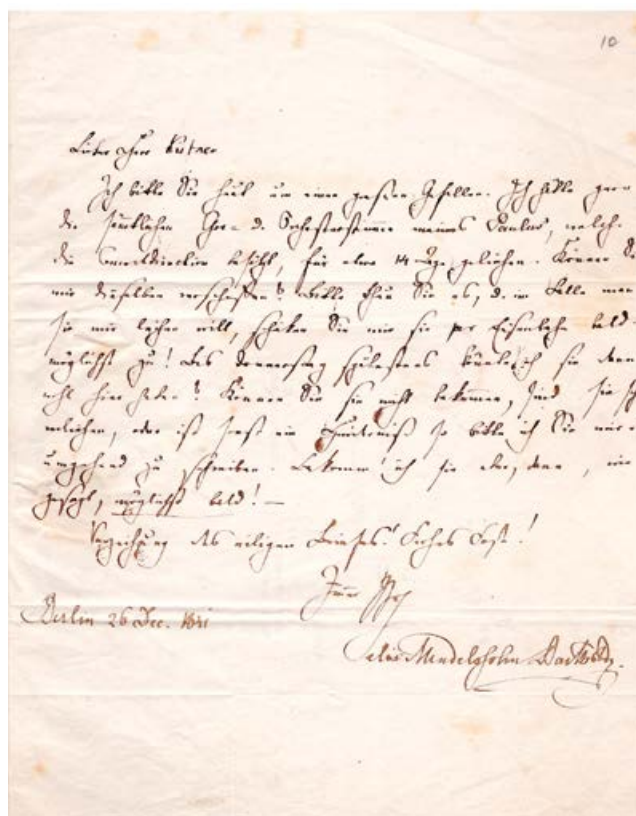 10
Lieber Herr Kistner
Ich bitte Sie heut um einen großen Gefallen. Ich hätte gern
die sämtlichen Chor- u. Orchesterstimmen meines Paulus, welche
die besitzt, für etwa 14 Tage geliehen. Können Sie
mir dieselben verschaffen? Bitte thun Sie es, u. im Falle man
sie mir leihen will, schicken Sie mir sie per Eisenbahn bald
möglichst zu! Bis Donnerstag spätestens könnt ich sie dann
wohl hier haben? Können Sie sie nicht bekommen, sind sie
verliehen, oder ist sonst ein Hinderniß so bitte ich Sie mir
umgehend zu schreiben. Bekomm' ich sie aber, dann, wie
gesagt, möglichst bald! —
Verzeihung des eiligen Briefes!
Immer Ihr
Berlin 26 Dec. 1841
Felix Mendelssohn Bartholdy.